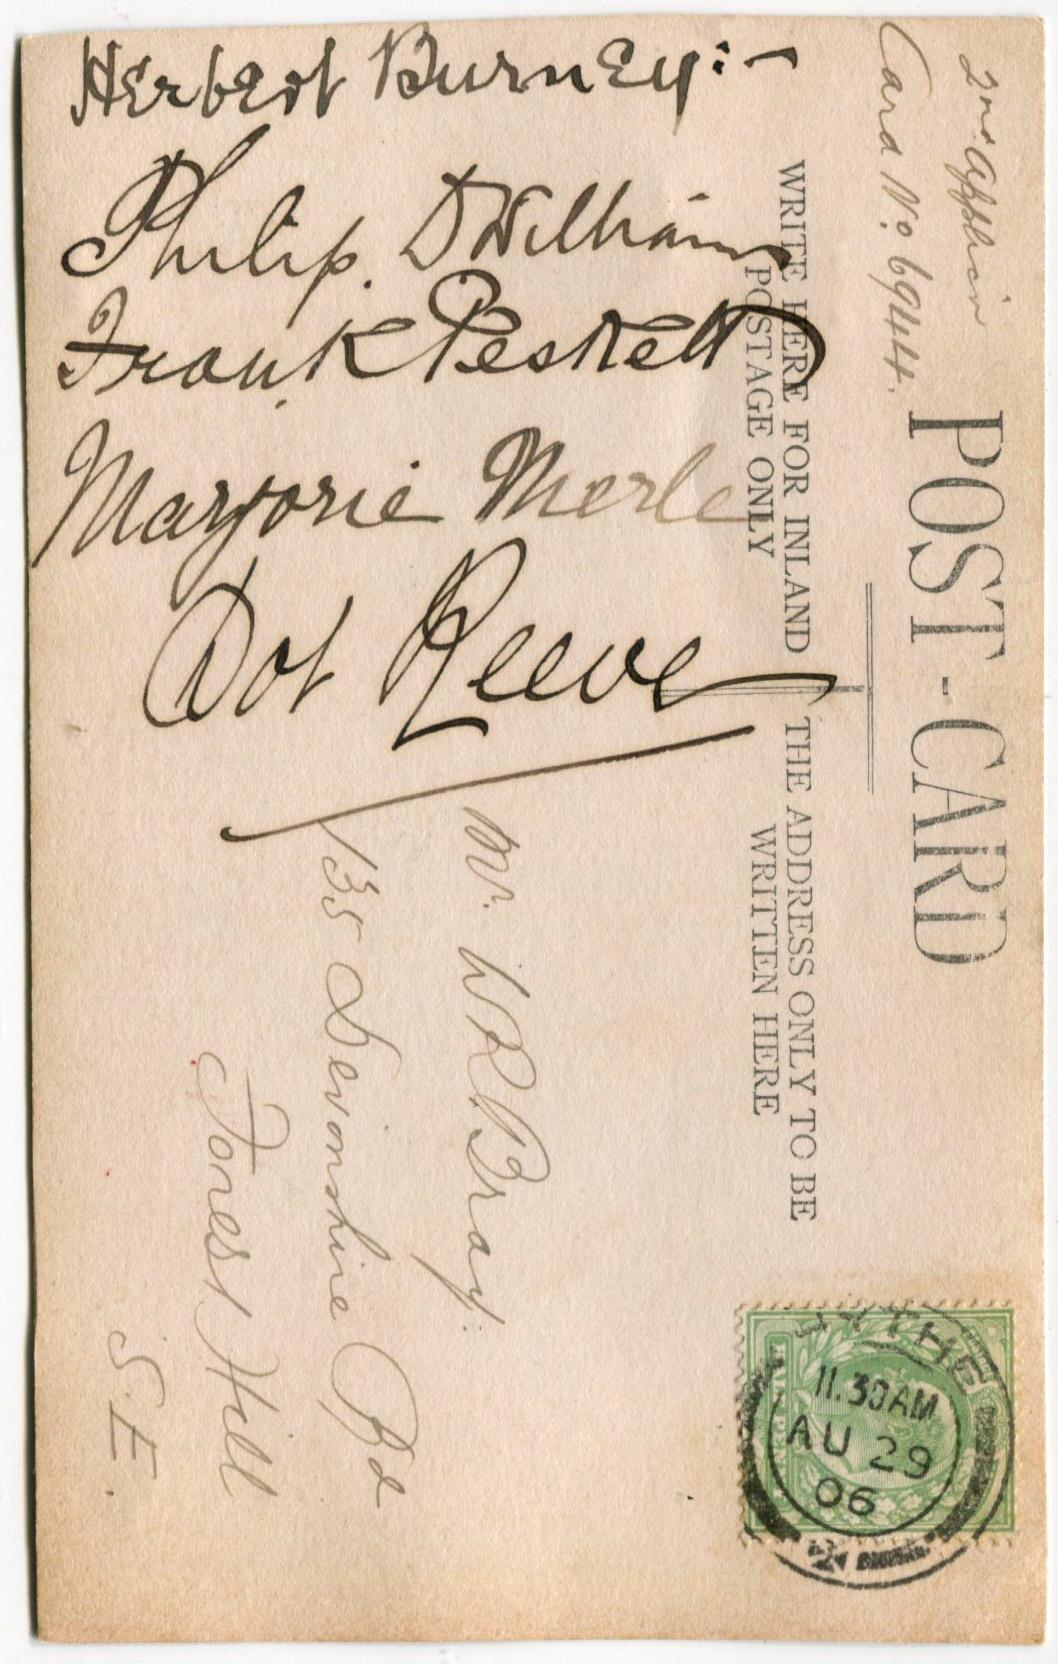 Herbert Burney:-
Philip. D Williams
Frank Peskett
Marjorie Merle
Dot Reeve
2nd
Card No. 69444.
POST-CARD
WRITE HERE FOR INLAND
POSTAGE ONLY
THE ADDRESS ONLY TO BE
WRITTEN HERE
Mr. W R. Bray.
135 Devonshire Rd
Forest Hill
S.E.
HYTHE
11.30AM
AU 29
06
2